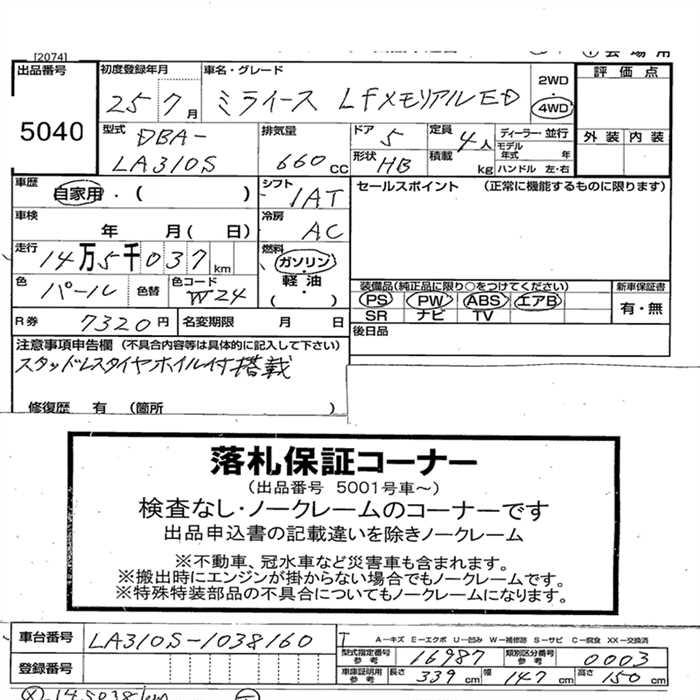 [2074]
出品番号 5040
初度登録年月 25 7月
車名・グレード ミライース LFメモリアルED
2WD 4WD
評価点
外装 内装
型式 DBA-LA310S
排気量 660 CC
ドア 5
定員 4人
形状 HB
積載 kg
ディーラー・並行
モデル年式 年
ハンドル 左・右
車歴 自家用・( )
シフト IAT
セールスポイント (正常に機能するものに限ります)
車検 年 月( 日)
冷房 AC
走行 14万5千037km
燃料 ガソリン 軽油 ( )
色 パール 色替
色コード W24
装備品(純正品に限り○をつけてください)
PS PW ABS エアB
SR ナビ TV
新車保証書 有・無
R券 7320円
名変期限 月 日
後日品
注意事項申告欄 (不具合内容等は具体的に記入して下さい)
スタッドレスタイヤホイル付搭載
修復歴 有 (箇所 )
落札保証コーナー
(出品番号 5001号車~)
検査なし・ノークレームのコーナーです
出品申込書の記載違いを除きノークレーム
※不動車、冠水車など災害車も含まれます。
※搬出時にエンジンが掛からない場合でもノークレームです。
※特殊特装部品の不具合についてもノークレームになります。
車台番号 LA310S-1038160
A-キズ E-エクボ U-凹み W-補修跡 S-サビ C-腐食 XX-交換済
型式指定番号 参考 16987
類別区分番号 参考 0003
登録番号
車庫証明用 参考 長さ 339cm 幅 147cm 高さ 150cm